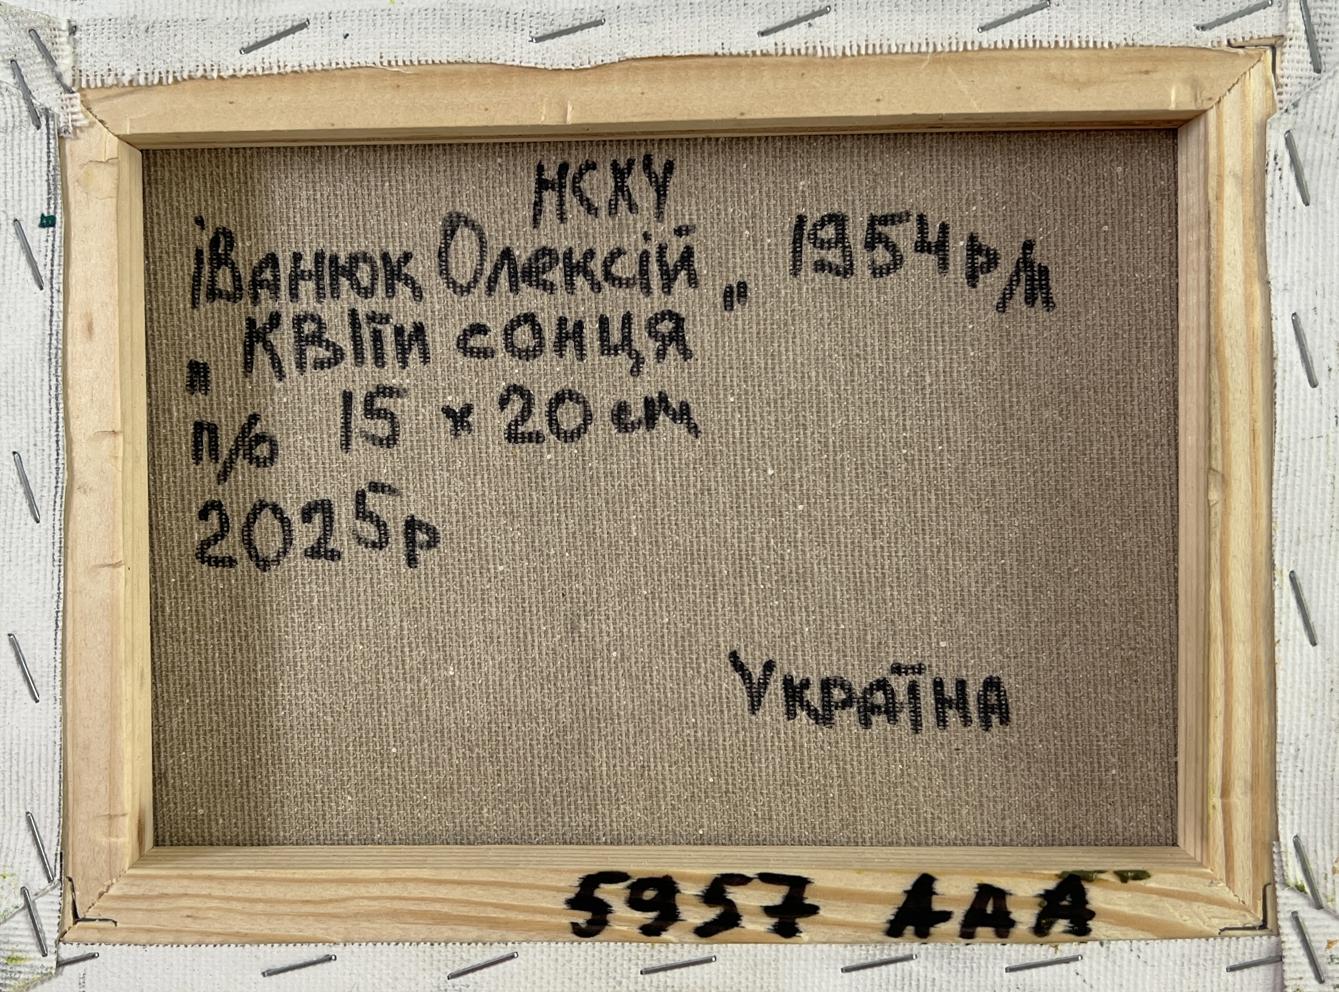 НСХУ
Іванюк Олексій 1954 р/н
„Квіти сонця"
п/о 15 x 20 см
2025р
Україна
5957 AAA